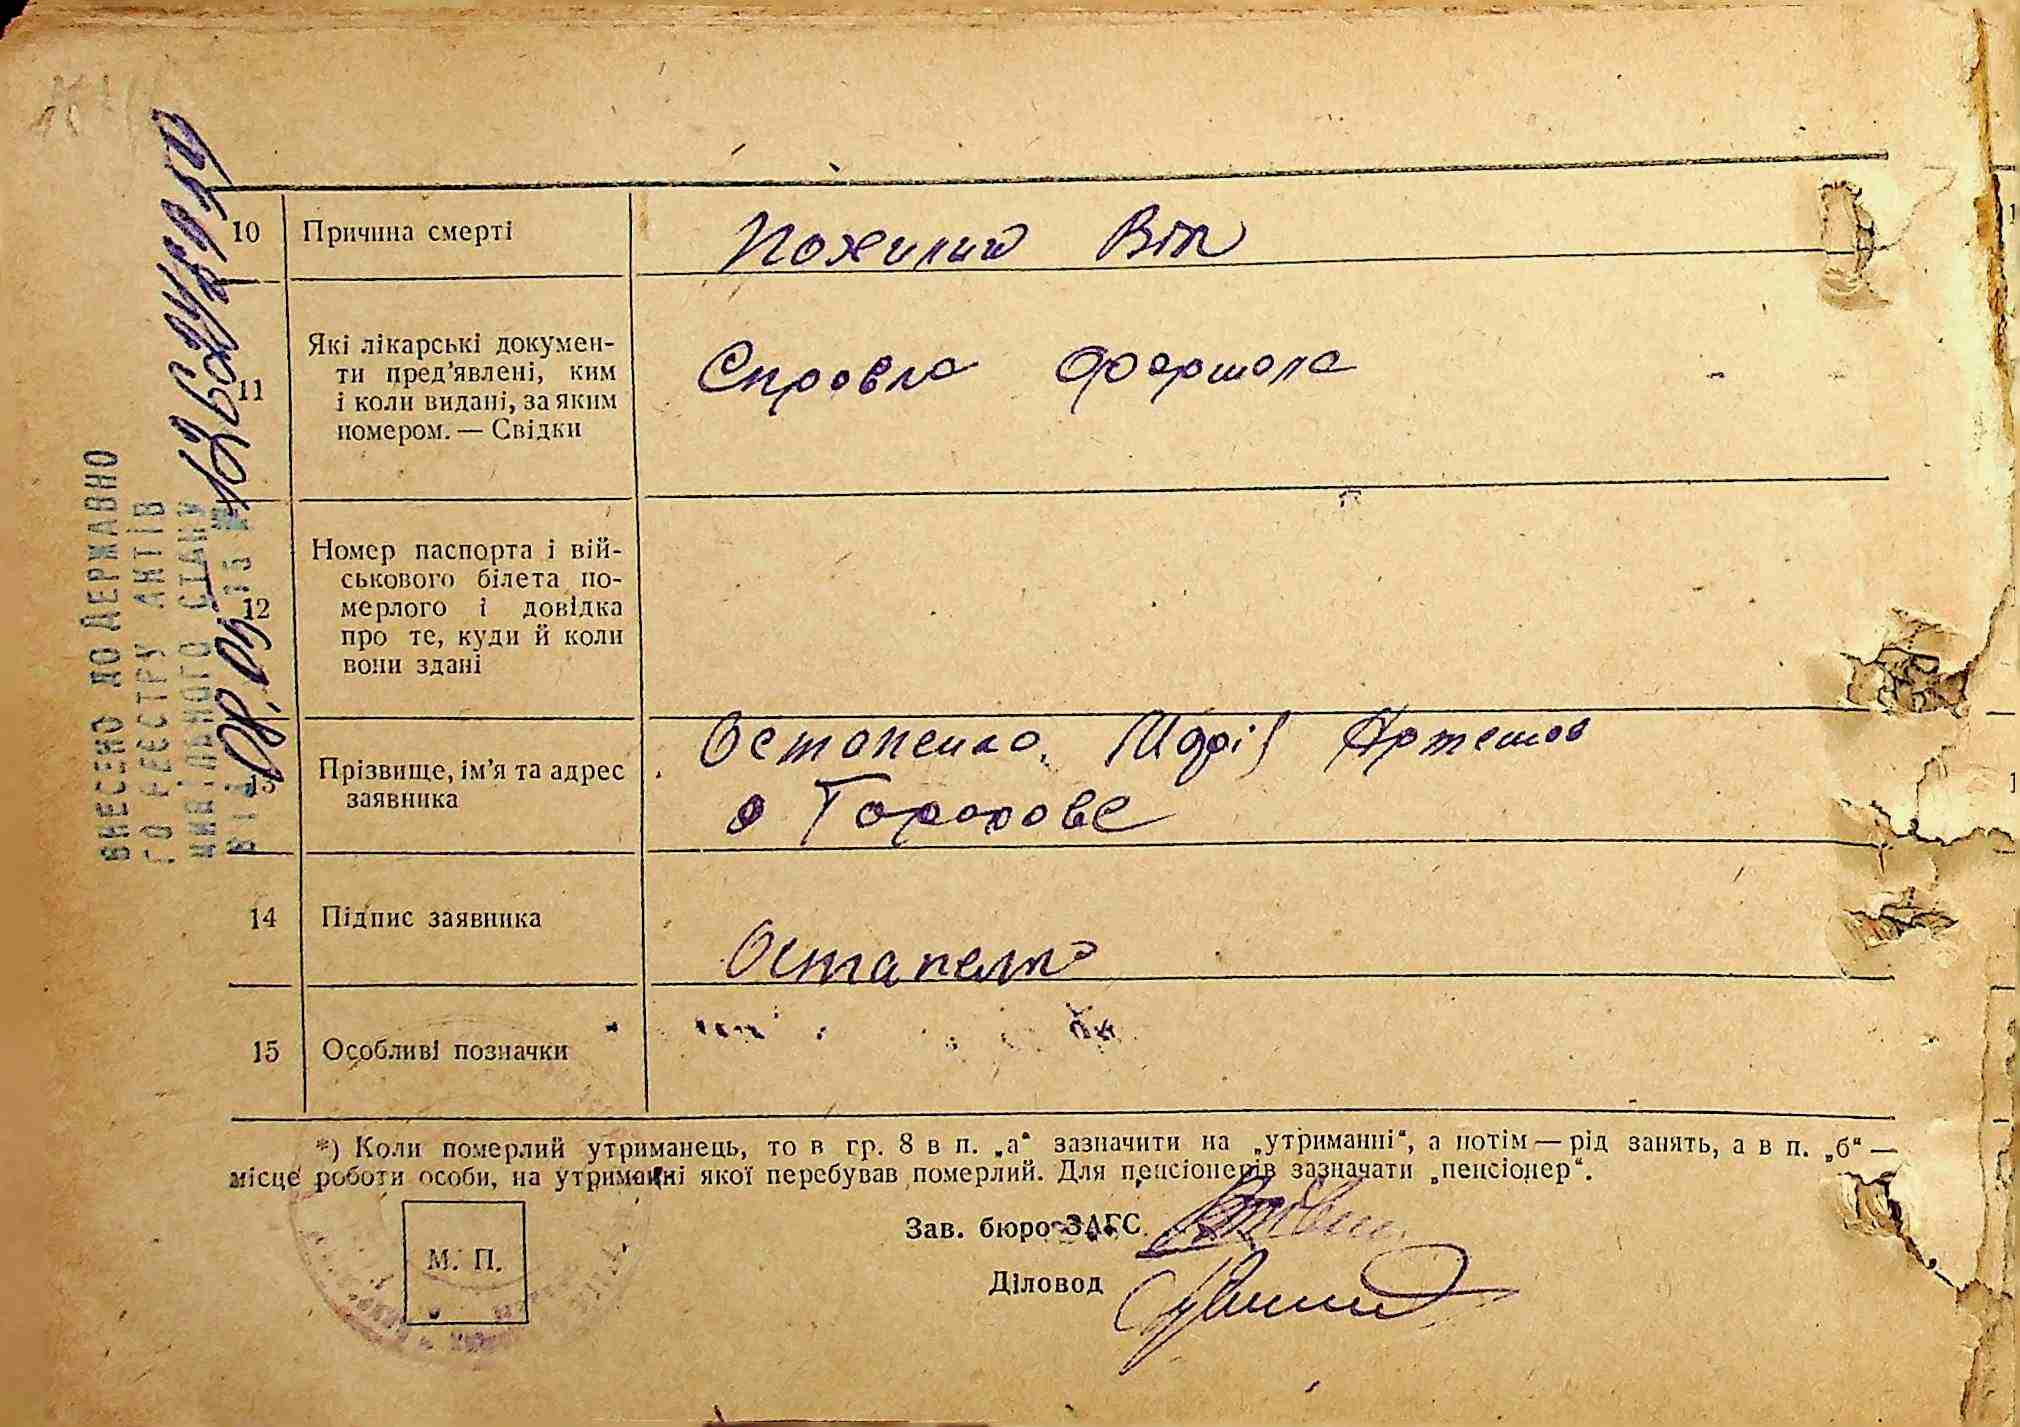 10 Причина смерті Похилий Вік
11 Які лікарські докумен-
ти пред’явлені, ким
і коли видані, за яким
номером. — Свідки
Справка фершала
12 Номер паспорта і вій-
ськового білета по-
мерлого і довідка
про те, куди й коли
вони здані
13 Прізвище, ім’я та адрес
заявника
Остапенко Марія Артемов
с Горохове
14 Підпис заявника Остапенко
15 Особливі позначки
*) Коли померлий утриманець, то в гр. 8 в п. „а“ зазначити на „утриманні“, а потім — рід занять, а в п. „б“ —
місце роботи особи, на утриманні якої перебував померлий. Для пенсіонерів зазначати „пенсіонер“.
М. П.
Зав. бюро ЗАГС
Діловод
ВНЕСЕНО ДО ДЕРЖАВНО
ГО РЕЄСТРУ АКТІВ
ЦИВІЛЬНОГО СТАНУ
ВІД 08.05 ЗА №